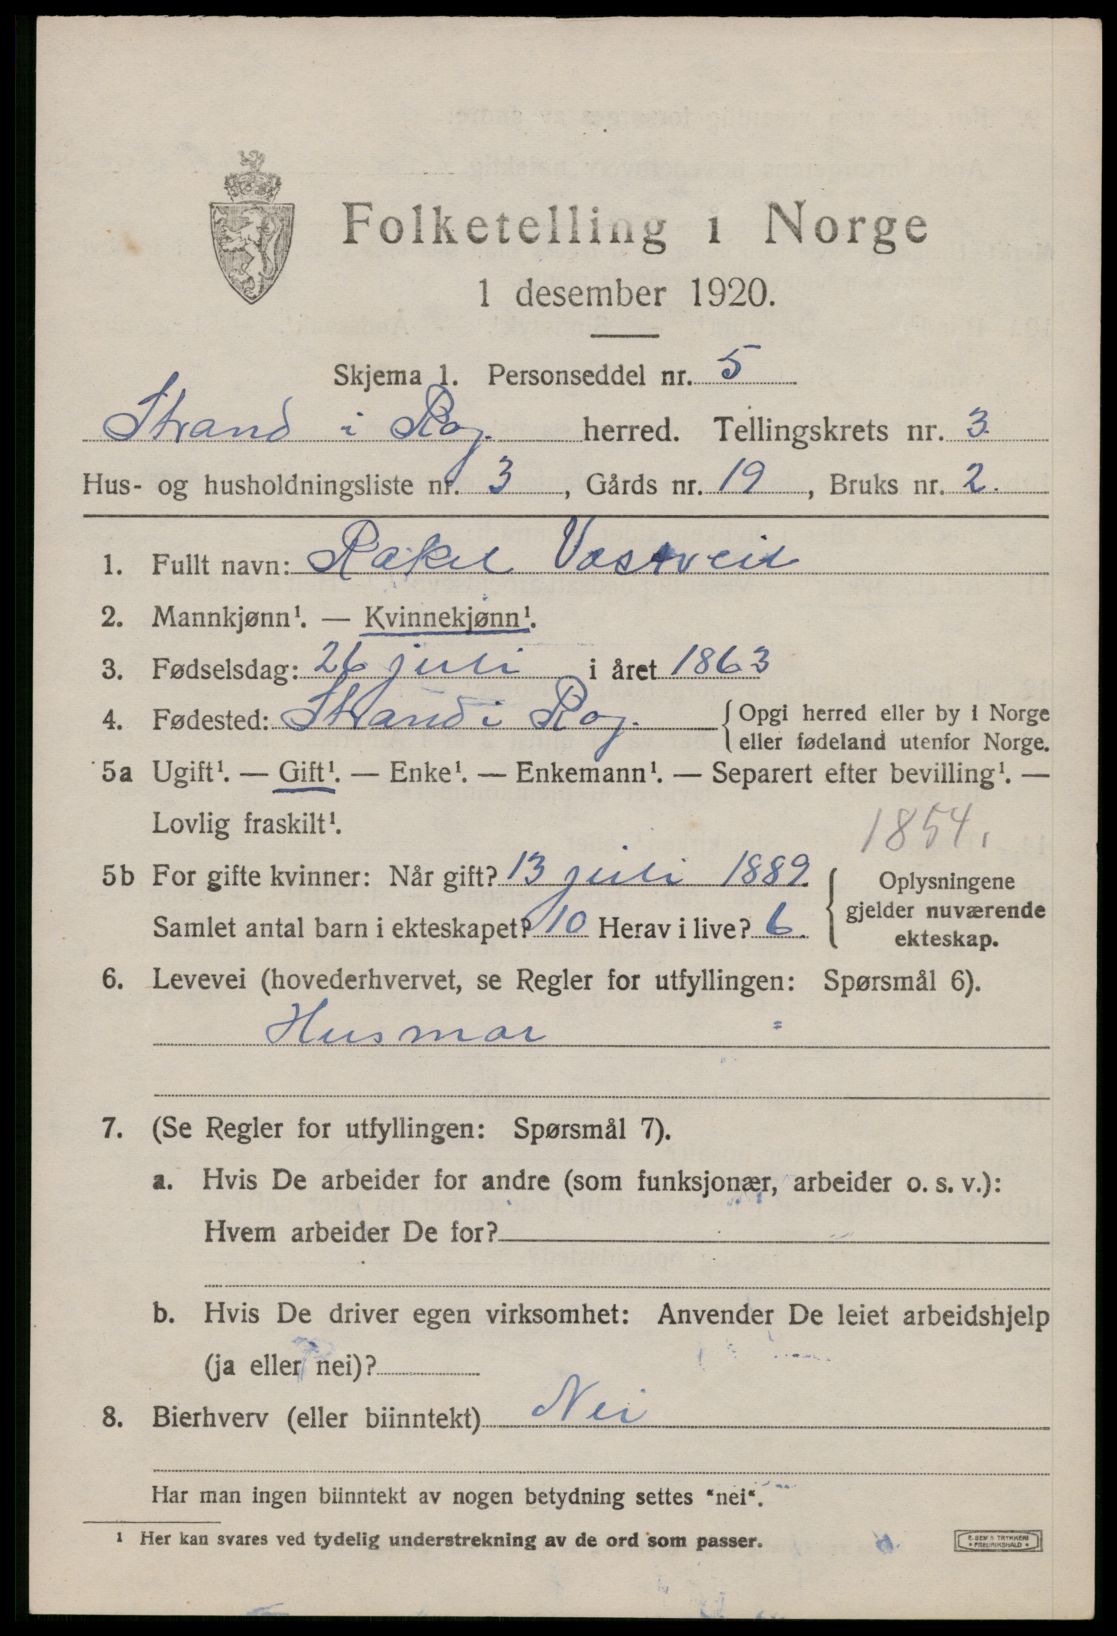 Folketelling i Norge
1 desember 1920.
Skjema 1. Personseddel nr. 5
Strand i Rog. herred. Tellingskrets nr. 3.
Hus- og husholdningsliste nr. 3, Gårds nr. 19, Bruks nr. 2.
1. Fullt navn: Rakel Vastveit
2. Mannkjønn¹. — Kvinnekjønn¹.
3. Fødselsdag: 26 juli i året 1863
4. Fødested: Strand i Rog. { Opgi herred eller by i Norge
eller fødeland utenfor Norge.
5a Ugift¹. — Gift¹. — Enke¹. — Enkemann¹. — Separert efter bevilling¹. —
Lovlig fraskilt¹.
1854.
5b For gifte kvinner: Når gift? 13 juli 1889. { Oplysningene
gjelder nuværende
ekteskap.
Samlet antal barn i ekteskapet? 10 Herav i live? 6.
6. Levevei (hovederhvervet, se Regler for utfyllingen: Spørsmål 6).
Husmor
7. (Se Regler for utfyllingen: Spørsmål 7).
a. Hvis De arbeider for andre (som funksjonær, arbeider o. s. v.):
Hvem arbeider De for?
b. Hvis De driver egen virksomhet: Anvender De leiet arbeidshjelp
(ja eller nei)?
8. Bierhverv (eller biinntekt) Nei
Har man ingen biinntekt av nogen betydning settes "nei".
¹ Her kan svares ved tydelig understrekning av de ord som passer.
TRYKKERI
FREDRIKSHALD